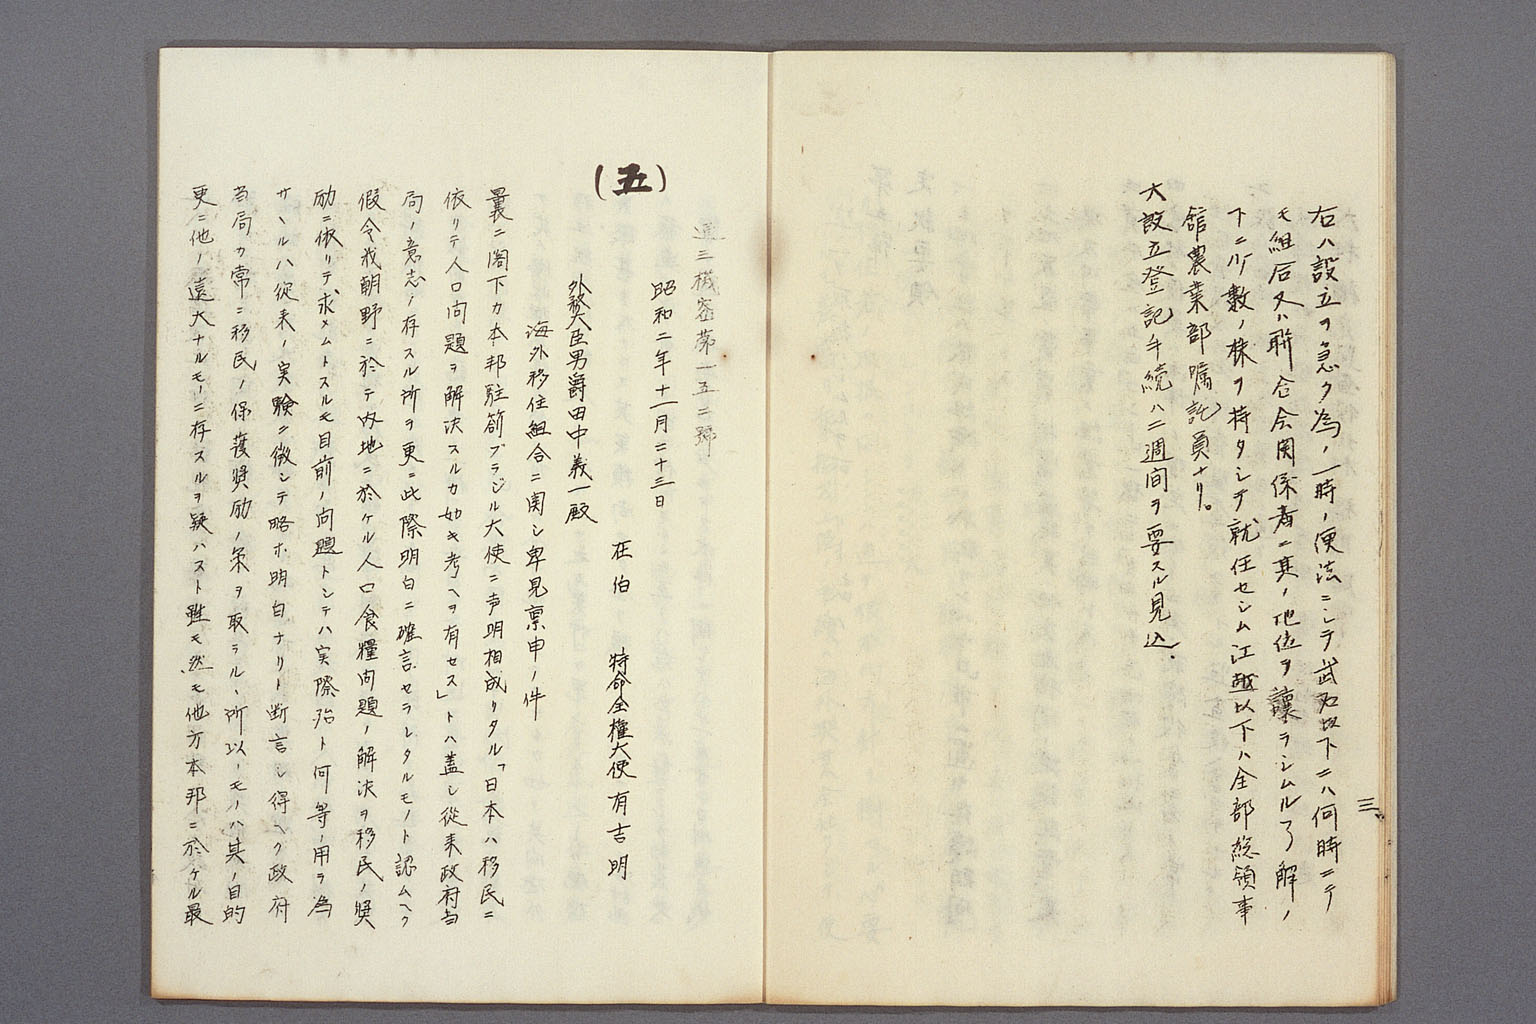 三
右ハ設立ヲ急ク為ノ一時ノ便法ニシテ武石以下ニハ何時ニテ
モ組合又ハ聯合会関係者ニ其ノ地位ヲ譲ラシムル了解ノ
下ニ少数ノ株ヲ持タシテ就任セシム江越以下ハ全部総領事
館農業部嘱託員ナリ。
大設立登記手続ハ二週間ヲ要スル見込.
(五)
通三機密第一五二号
昭和二年十一月二十三日
在伯 特命全権大使 有吉明
外務大臣男爵田中義一殿
海外移住組合ニ関シ卑見稟申ノ件
曩ニ閣下カ本邦駐箚ブラジル大使ニ声明相成リタル「日本ハ移民ニ
依リテ人口問題ヲ解決スルカ如キ考ヘヲ有セス」トハ蓋シ従来政府当
局ノ意志ノ存スル所ヲ更ニ此際明白ニ確言セラレタルモノト認ムヘク
假令我朝野ニ於テ内地ニ於ケル人口食糧問題ノ解決ヲ移民ノ奨
励ニ依リテ求メムトスルモ目前ノ問題トシテハ実際殆ト何等ノ用ヲ為
サヽルハ従来ノ実験ニ徴シテ略ホ明白ナリト断言シ得ヘク政府
当局カ常ニ移民ノ保護奨励ノ策ヲ取ラルヽ所以ノモノハ其ノ目的
更ニ他ノ遠大ナルモノニ存スルヲ疑ハスト雖モ然モ他方本邦ニ於ケル最